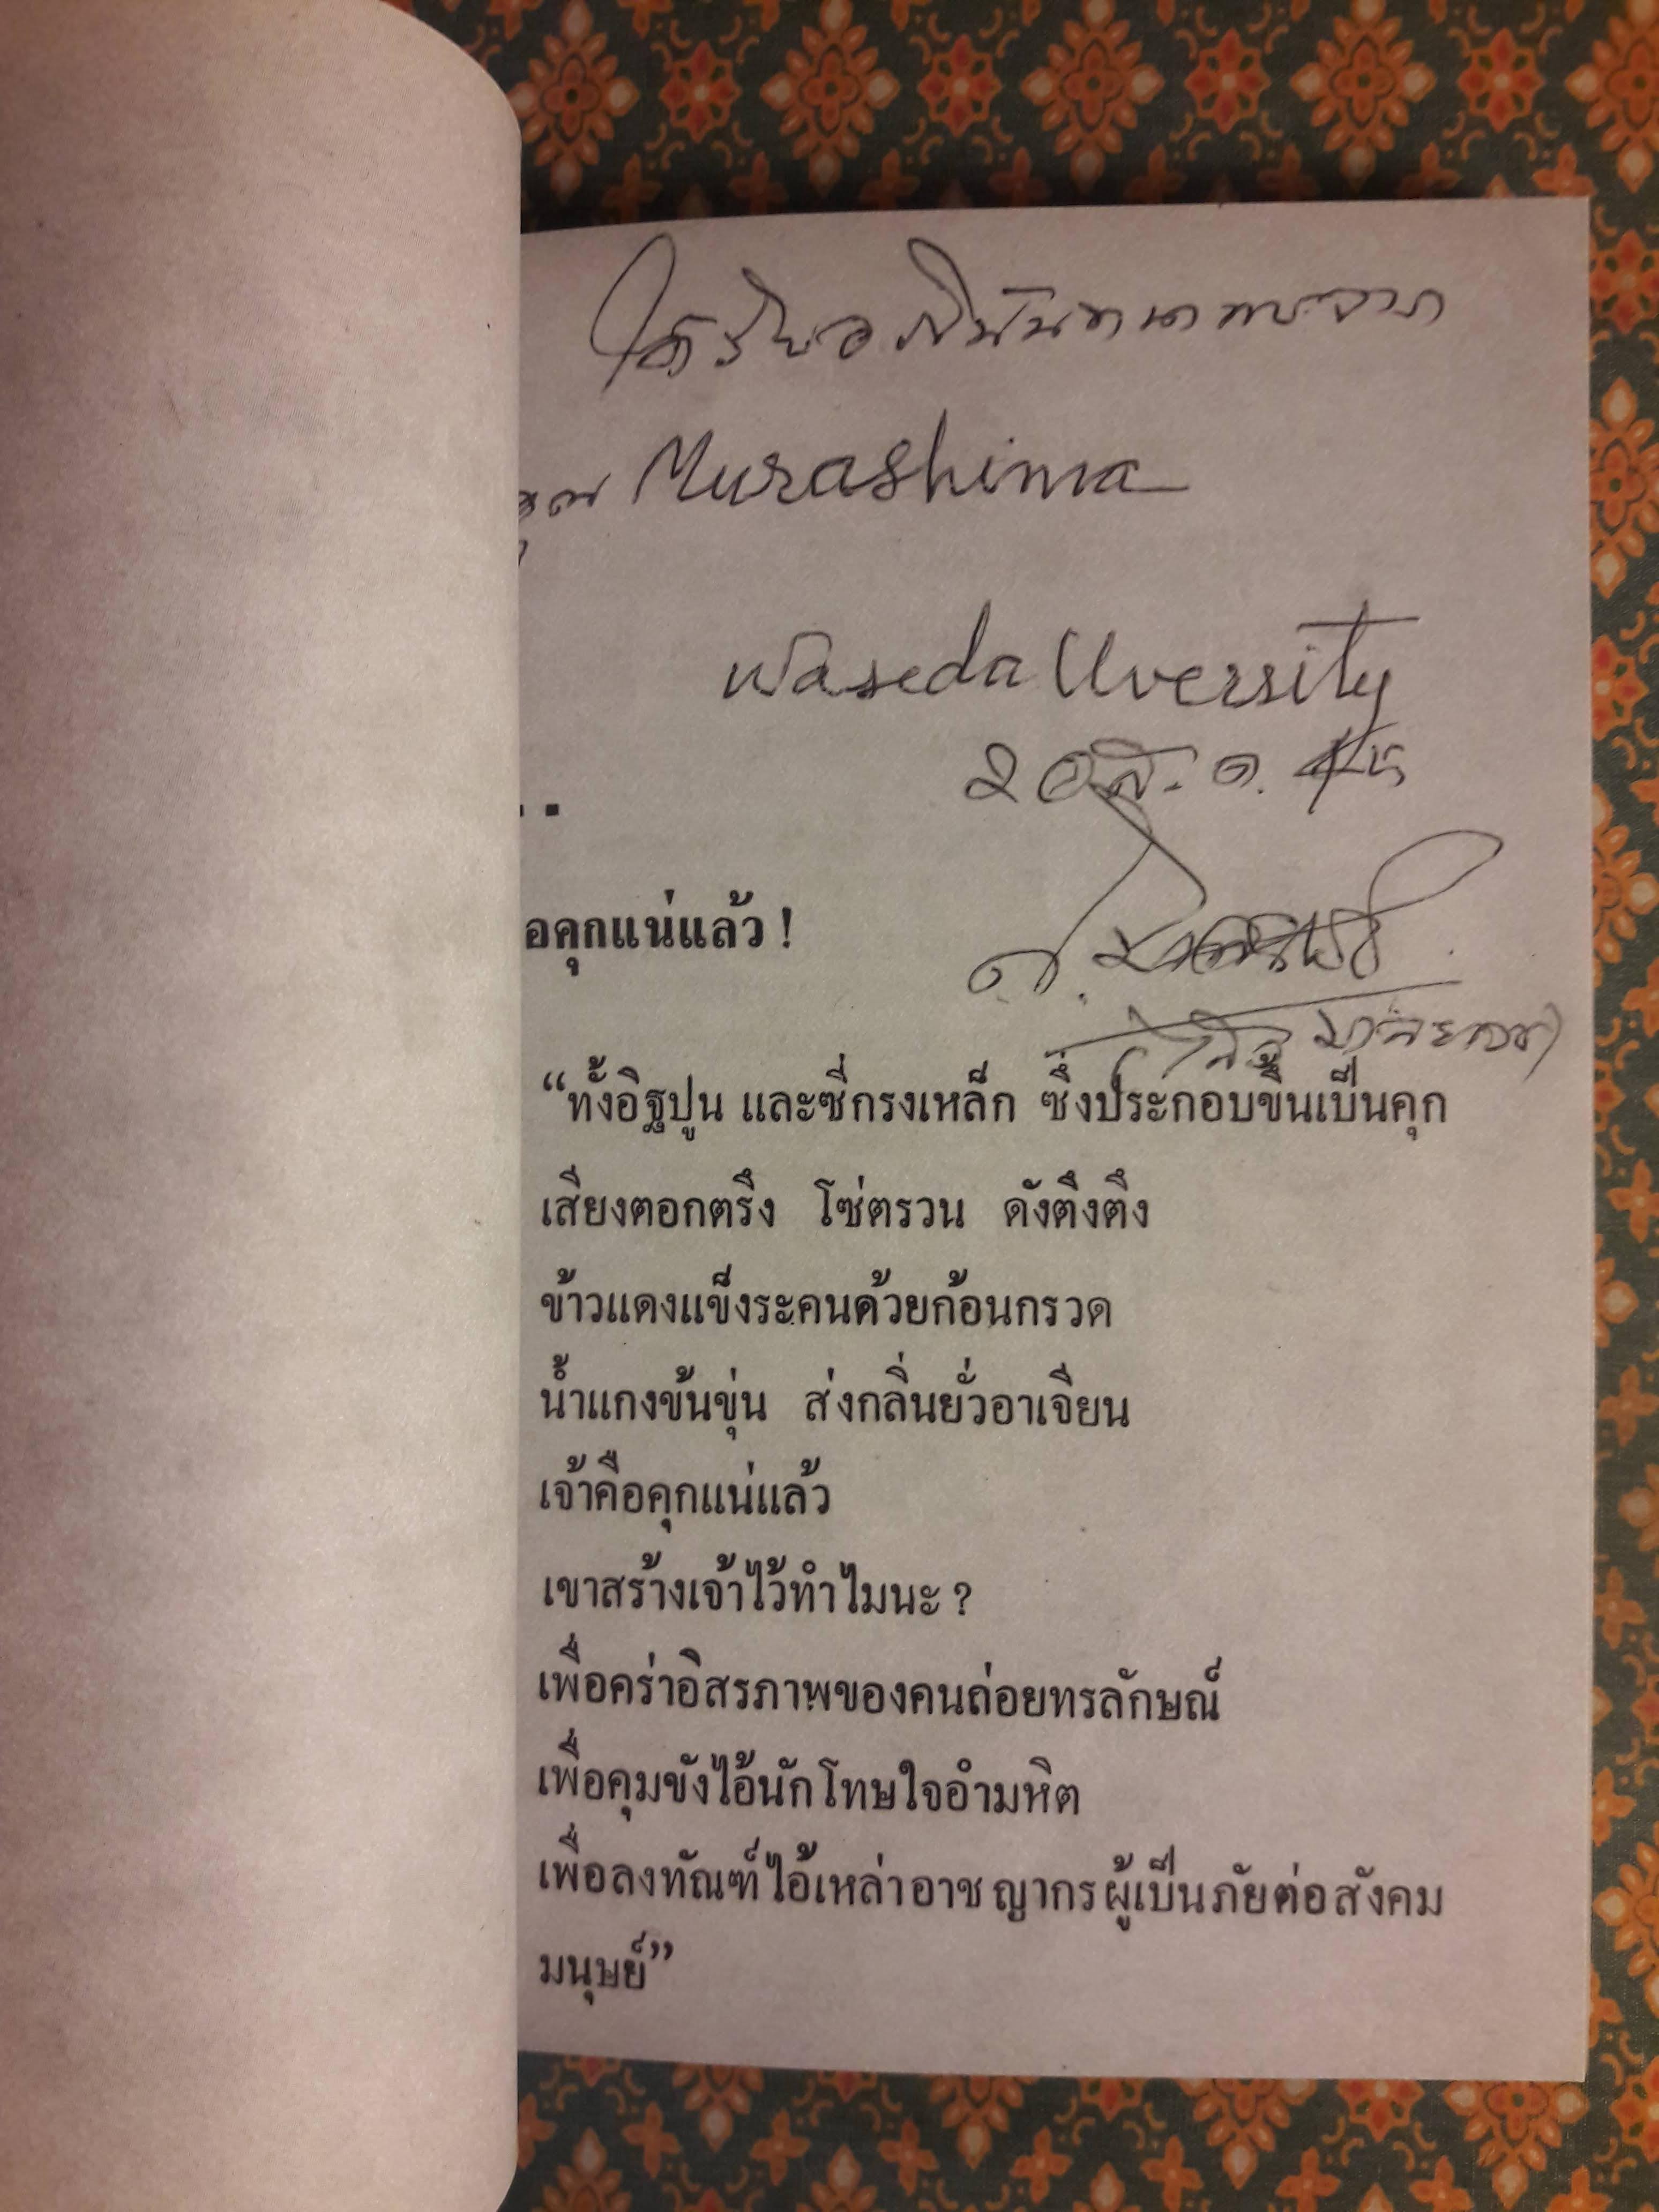 ได้รับอภินันทนาการจาก
คุณ Murashima
Waseda Uversity
..
อคุกแน่แล้ว !
“ทั้งอิฐปูน และซี่กรงเหล็ก ซึ่งประกอบขึ้นเป็นคุก
เสียงตอกตรึง โซ่ตรวน ดังตึงตึง
ข้าวแดงแข็งระคนด้วยก้อนกรวด
น้ำแกงข้นขุ่น ส่งกลิ่นยั่วอาเจียน
เจ้าคือคุกแน่แล้ว
เขาสร้างเจ้าไว้ทำไมนะ ?
เพื่อคร่าอิสรภาพของคนถ่อยทรลักษณ์
เพื่อคุมขังไอ้นักโทษใจอำมหิต
เพื่อลงทัณฑ์ไอ้เหล่าอาชญากรผู้เป็นภัยต่อสังคม
มนุษย์”